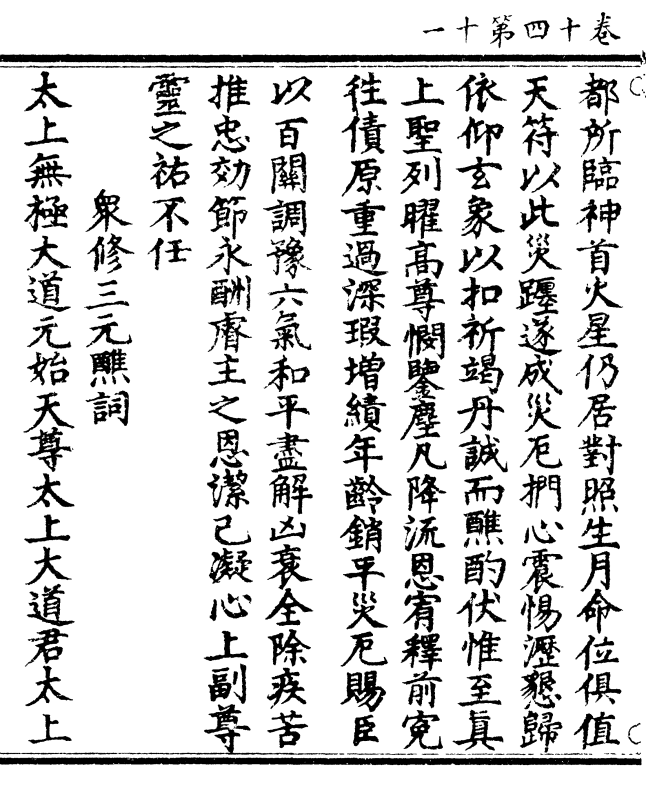 卷十四第十一
都所臨神首火星仍居對照生月命位俱值
天符以此災躔遂成災厄捫心震惕瀝懇歸
依仰玄象以扣祈竭丹誠而醮酌伏惟至真
上聖列曜高尊憫鑒塵凡降流恩宥釋前寃
徃債原重過深瑕增績年齡銷平災厄賜臣
以百關調豫六氣和平盡解凶衰全除疾苦
推忠効節永酬睿主之恩潔己凝心上副尊
靈之祐不任
衆修三元醮詞
太上無極大道元始天尊太上大道君太上